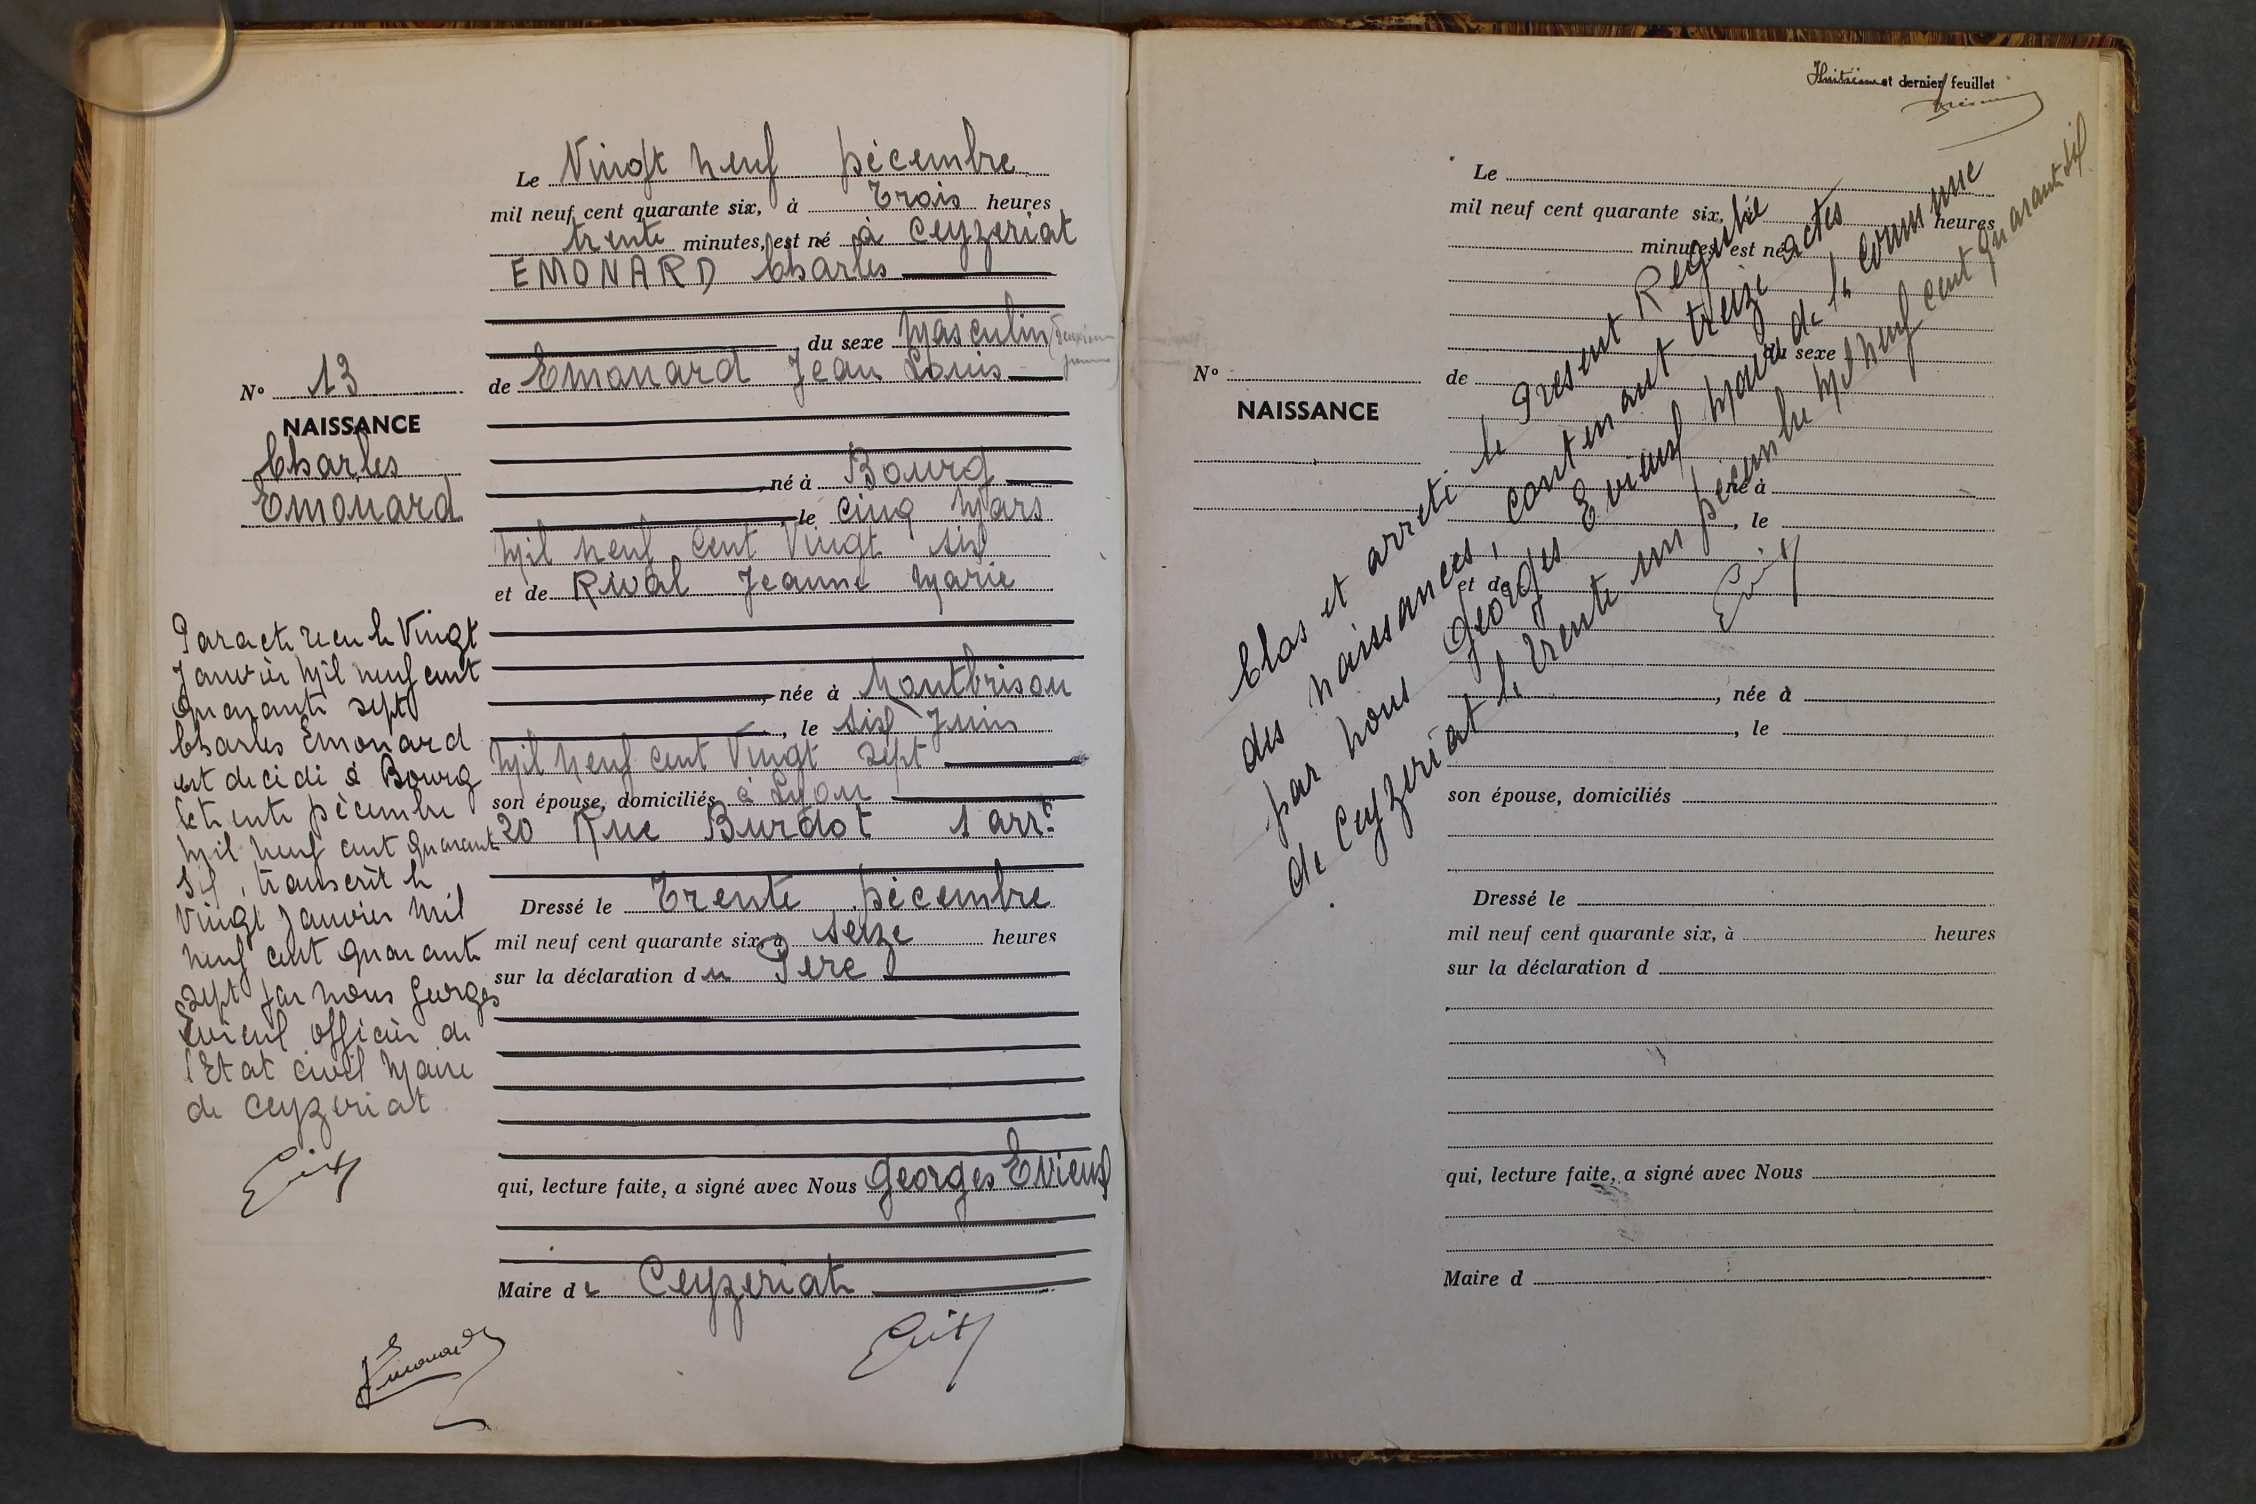 Le Vingt neuf Décembre
mil neuf cent quarante six, à Trois heures
trente minutes, est né à Ceyzeriat
EMONARD Charles
du sexe Masculin
de Emonard Jean Louis
N° 13
NAISSANCE
Charles
Emonard
, né à Bourg
, le cinq Mars
Mil neuf cent Vingt six
et de Rival Jeanne Marie
, née à Montbrison
, le six Juin
Mil neuf cent Vingt sept
son épouse, domiciliés à Lyon
20 Rue Burdot 1 arrt
Dressé le Trente Décembre
mil neuf cent quarante six, à seize heures
sur la déclaration du Père
qui, lecture faite, a signé avec Nous Georges Evieux
Maire de Ceyzeriat
Par acte recu le Vingt
Janvier Mil neuf cent
quarante sept
Charles Emonard
est décidé à Bourg
le trente Décembre
Mil neuf cent quarante
six, transcrit le
Vingt Janvier Mil
neuf cent quarante
sept par nous Georges
Evieux officier de
l'Etat civil Maire
de Ceyzeriat
Emonard
Huitième et dernier feuillet
Le
mil neuf cent quarante six, à heures
minutes, est né
du sexe
de
N°
NAISSANCE
né à
, le
et de
, née à
, le
son épouse, domiciliés
Dressé le
mil neuf cent quarante six, à heures
sur la déclaration d
qui, lecture faite, a signé avec Nous
Maire d
Clos et arreté le Present Registre
des naissances, contenant treize actes
par nous Georges Evieux Maire de la Commune
de Ceyzeriat le trente un Décembre Mil neuf cent quarante six